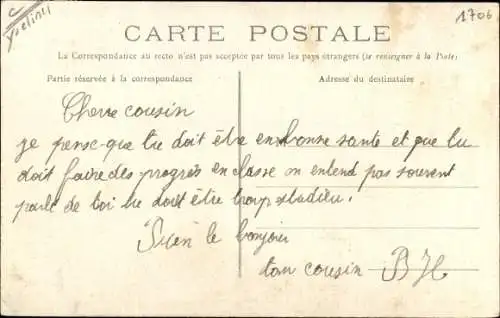 Yvelines
1706
CARTE POSTALE
La Correspondance au recto n'est pas acceptée par tous les pays étrangers (se renseigner à la Poste)
Partie réservée à la correspondance
Adresse du destinataire
Chere cousin
je pense que tu doit être en bonne sante et que tu
doit faire des progrès en classe on entend pas souvent
parle de toi tu doit être trop studieu.
Bien le bonjour
ton cousin B H